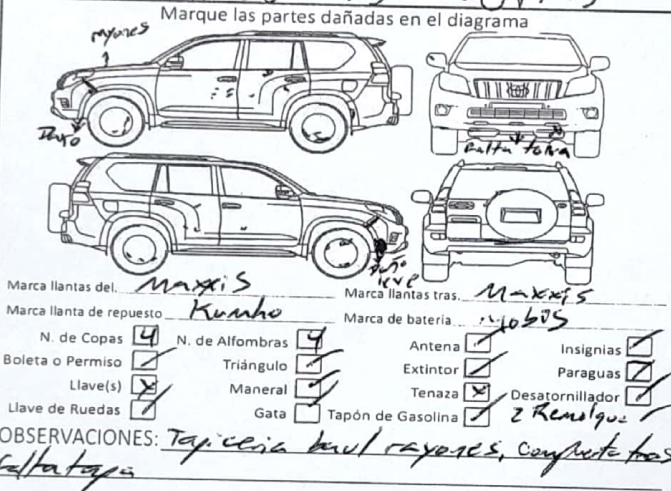 Marque las partes dañadas en el diagrama
rayones
Daño
Falta tolva
Daño
leve
Marca llantas del. Maxxis Marca llantas tras. Maxxis
Marca llanta de repuesto Kumho Marca de bateria
N. de Copas 4 N. de Alfombras 4 Antena Insignias
Boleta o Permiso Triángulo Extintor Paraguas
Llave(s) x Maneral Tenaza x Desatornillador
Llave de Ruedas Gata Tapón de Gasolina 2 Remolque
OBSERVACIONES: Tapiceria baul rayones, compuerta tras
falta tapa